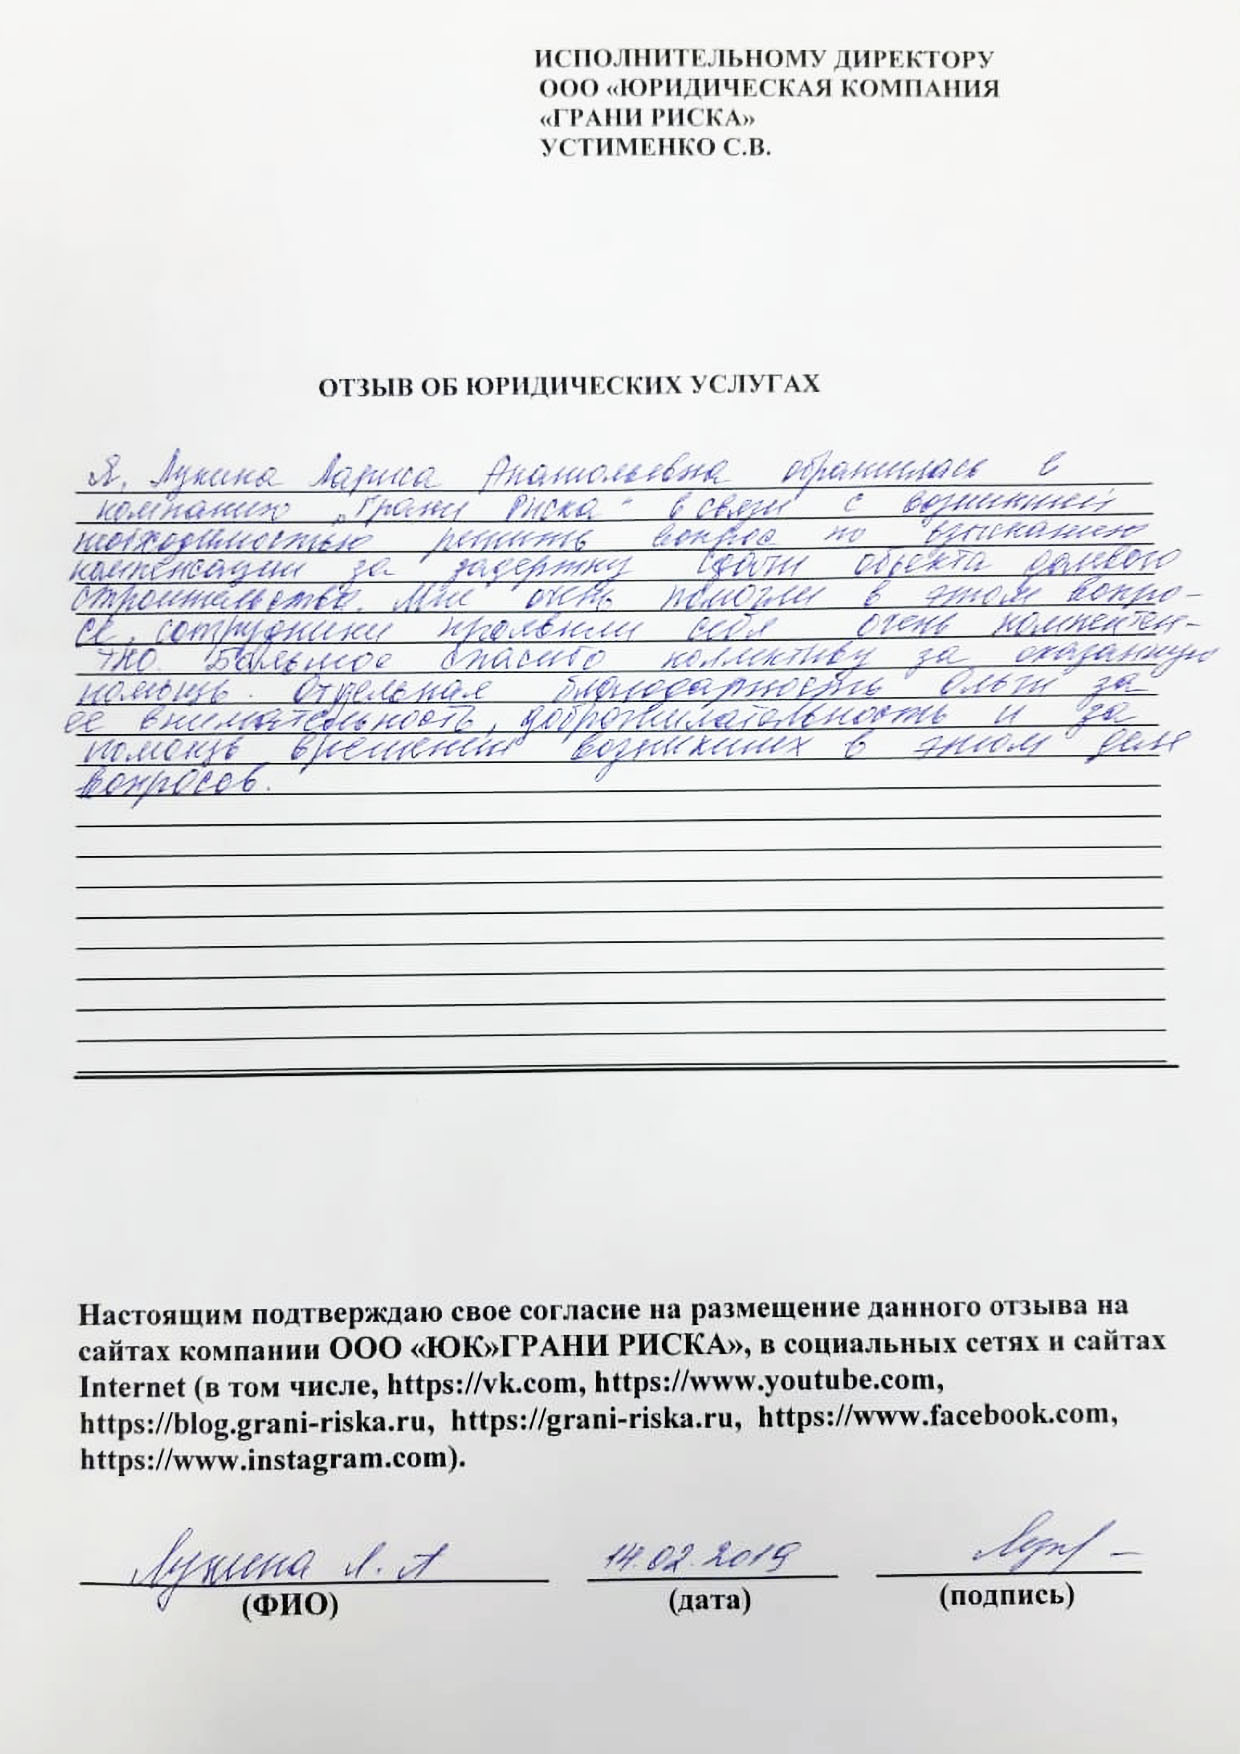 ИСПОЛНИТЕЛЬНОМУ ДИРЕКТОРУ
ООО «ЮРИДИЧЕСКАЯ КОМПАНИЯ
«ГРАНИ РИСКА»
УСТИМЕНКО С.В.
ОТЗЫВ ОБ ЮРИДИЧЕСКИХ УСЛУГАХ
Я, Лукина Лариса Анатольевна обратилась в
компанию "Грани Риска" в связи с возникшей
необходимостью решить вопрос по взысканию
компенсации за задержку сдачи объекта долевого
строительства. Мне очень помогли в этом вопро-
се, сотрудники проявили себя очень компетен-
тно. Большое спасибо коллективу за оказанную
помощь. Отдельная благодарность Ольги за
её внимательность, доброжелательность и за
помощь в решении возникших в этом деле
вопросов.
Настоящим подтверждаю свое согласие на размещение данного отзыва на
сайтах компании ООО «ЮК»ГРАНИ РИСКА», в социальных сетях и сайтах
Internet (в том числе, https://vk.com, https://www.youtube.com,
https://blog.grani-riska.ru, https://grani-riska.ru, https://www.facebook.com,
https://www.instagram.com).
Лукина Л. А 14.02.2019
(ФИО) (дата) (подпись)